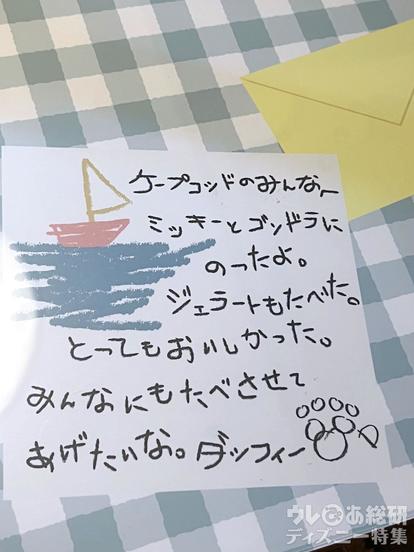 ケープコッドのみんなへ
ミッキーとゴンドラに
のったよ。
ジェラートもたべた。
とってもおいしかった。
みんなにもたべさせて
あげたいな。ダッフィー
ウレぴあ総研
ディズニー特集